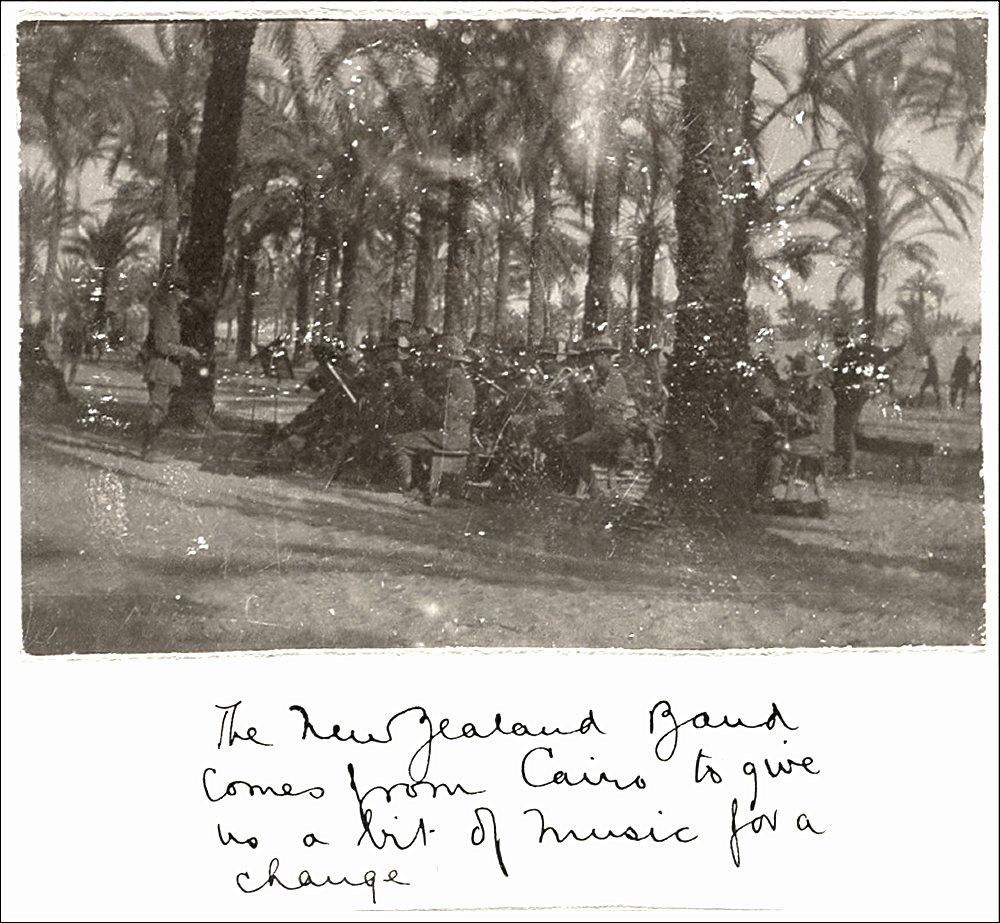 The New Zealand Band
comes from Cairo to give
us a bit of music for a
change